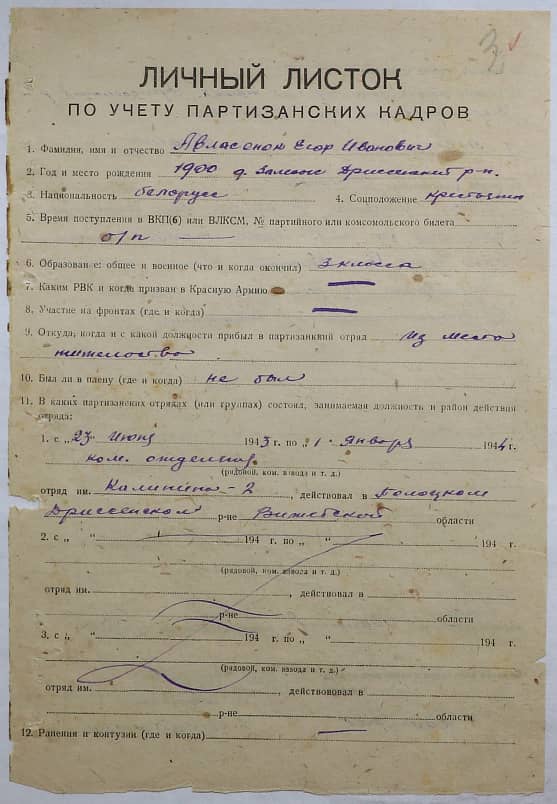 3
ЛИЧНЫЙ ЛИСТОК
ПО УЧЕТУ ПАРТИЗАНСКИХ КАДРОВ
1. Фамилия, имя и отчество Авласенок Егор Иванович
2. Год и место рождения 1900 д. Дриссенский р-н.
3. Национальность белорусс 4. Соцположение крестьянин
5. Время поступления в ВКП(б) или ВЛКСМ, № партийного или комсомольского билета
б/п —
6. Образование: общее и военное (что и когда окончил) 3 класса
7. Каким РВК и когда призван в Красную Армию —
8. Участие на фронтах (где и когда) —
9. Откуда, когда и с какой должности прибыл в партизанский отряд из место
жительства
10. Был ли в плену (где и когда) не был
11. В каких партизанских отрядах (или группах) состоял, занимаемая должность и район действия
отряда:
1. с „23“ Июня 1943 г. по „1“ Января 1944 г.
ком. отделения
(рядовой, ком. взвода и т. д.)
отряд им. Калинина-2, действовал в Полоцком
Дриссенском р-не Витебской области
2. с „ “ 194 г. по „ “ 194 г.
(рядовой, ком. взвода и т. д.)
отряд им. , действовал в
р-не области
3. с „ “ 194 г. по „ “ 194 г.
(рядовой, ком. взвода и т. д.)
отряд им. , действовал в
р-не области
12. Ранения и контузии (где и когда) —